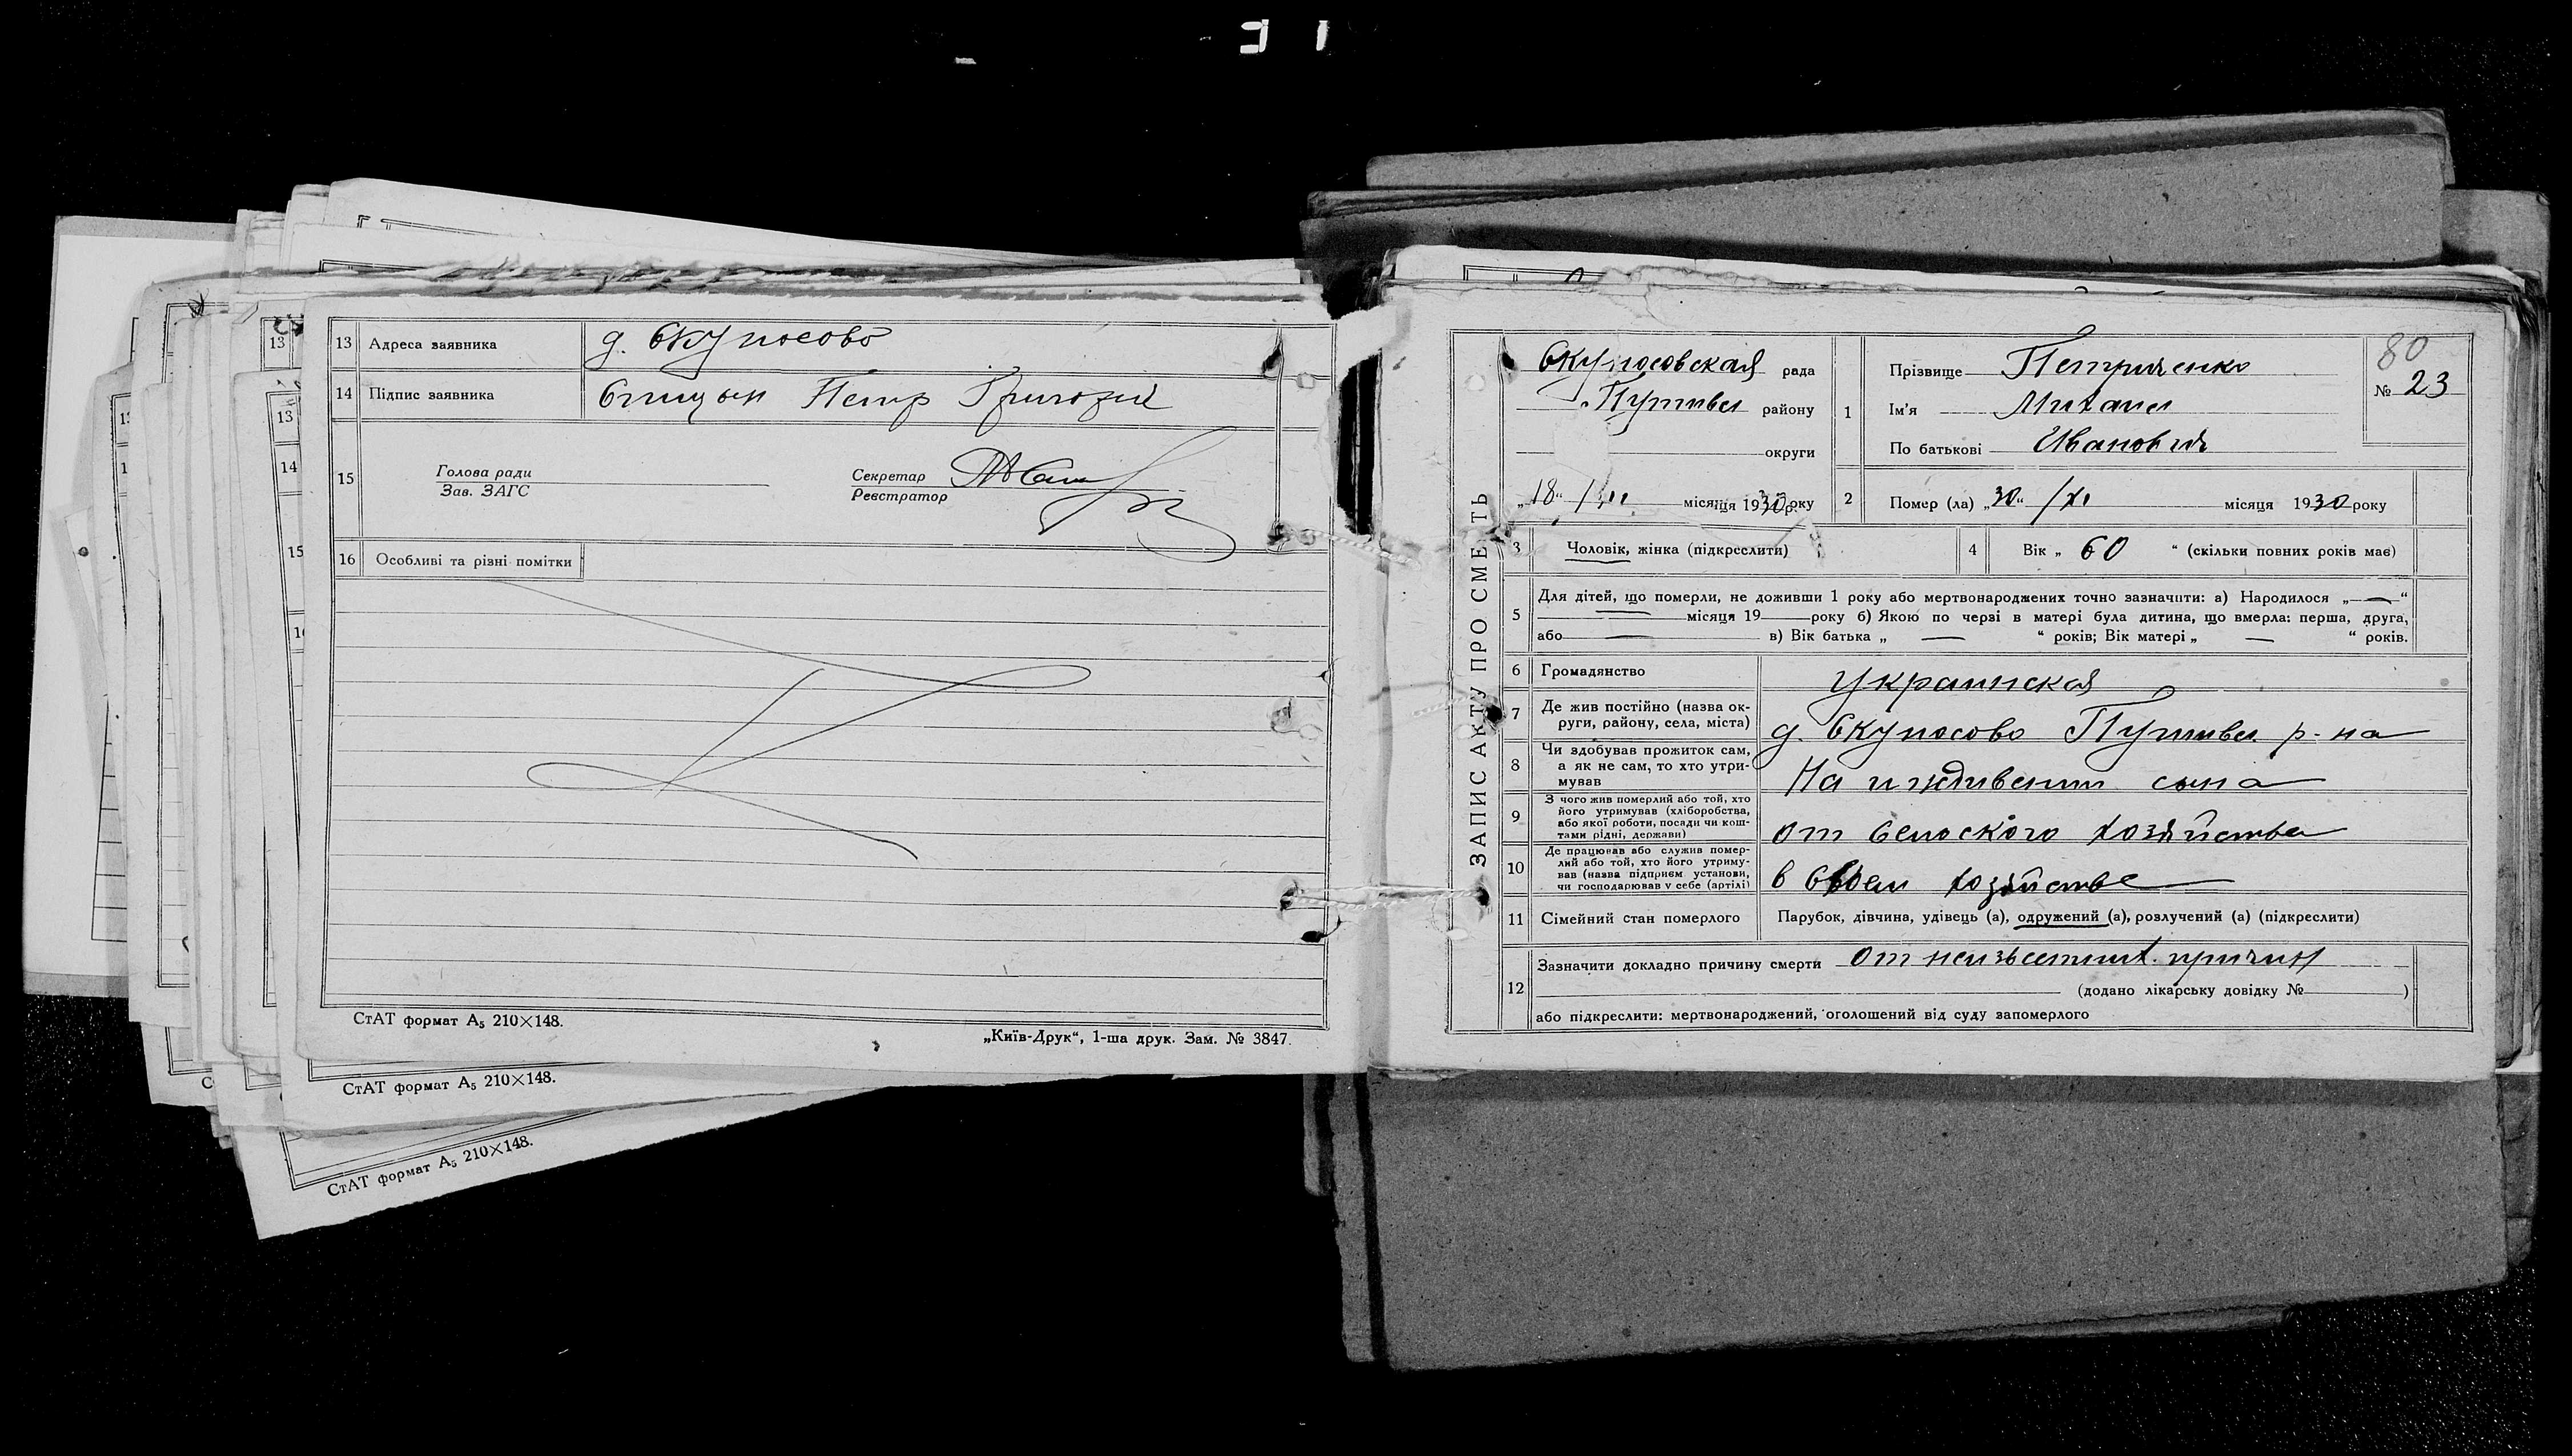 13 Адреса заявника д. Скуносово
14 Підпис заявника Спицын Петр Григорий
15 Голова ради
Зав. ЗАГС
Секретар
Реєстратор
16 Особливі та різні помітки
СтАТ формат А5 210×148.
„Київ-Друк“, 1-ша друк. Зам. № 3847.
СтАТ формат А5 210×148.
СтАТ формат А5 210×148.
13
13
14
15
ЗАПИС АКТУ ПРО СМЕРТЬ
Скуносовская рада
Путивл району
округи
„18“ / місяця 1930 року
80
№ 23
1 Прізвище Петриченко
Ім'я Михаил
По батькові Иванович
2 Помер (ла) „30“ /XI місяця 1930 року
3 Чоловік, жінка (підкреслити)
4 Вік „ 60 “ (скільки повних років має)
5 Для дітей, що померли, не доживши 1 року або мертвонароджених точно зазначити: а) Народилося „—“
місяця 19 року б) Якою по черзі в матері була дитина, що вмерла: перша, друга,
або — в) Вік батька „ — “ років; Вік матері „ — “ років.
6 Громадянство украинская
7 Де жив постійно (назва ок-
руги, району, села, міста) д. Скуносово Путивл. р-на
8 Чи здобував прожиток сам,
а як не сам, то хто утри-
мував На иждивении сына
9 З чого жив померлий або той, хто
його утримував (хліборобства,
або якої роботи, посади чи кош-
тами рідні, держави) от сельского хозяйства
10 Де працював або служив помер-
лий або той, хто його утриму-
вав (назва підприєм установи,
чи господарював у себе (артілі) в своем хозяйстве
11 Сімейний стан померлого Парубок, дівчина, удівець (а), одружений (а), розлучений (а) (підкреслити)
12 Зазначити докладно причину смерти от неизвестных причин
(додано лікарську довідку № )
або підкреслити: мертвонароджений, оголошений від суду запомерлого